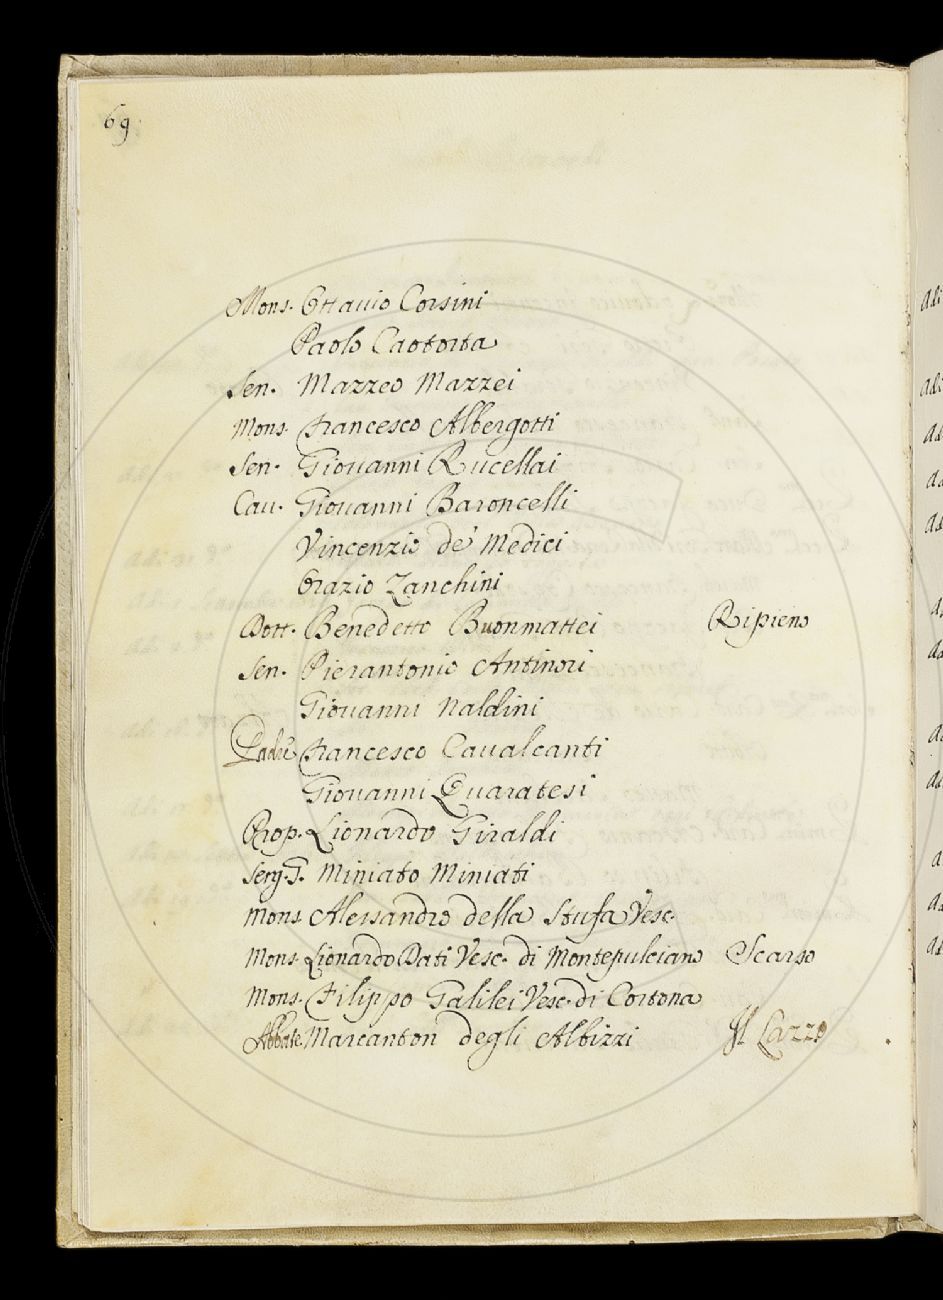 69
Mons. Ottauio Corsini
Paolo Caotorta
Sen. Mazzeo Mazzei
Mons. Francesco Albergotti
Sen. Giouanni Rucellai
Cau. Giouanni Baroncelli
Vincenzio de' Medici
Orazio Zanchini
Dott. Benedetto Buonmattei Ripieno
Sen. Pierantonio Antinori
Giouanni Naldini
Francesco Caualcanti
Giouanni Quaratesi
Prop. Lionardo Giraldi
Serg. G. Miniato Miniati
Mons. Alessandro della Stufa Vesc.
Mons. Lionardo Dati Vesc. di Montepulciano Scarso
Mons. Filippo Galilei Vesc. di Cortona
Abbate Marcanton degli Albizzi Il Lazzo